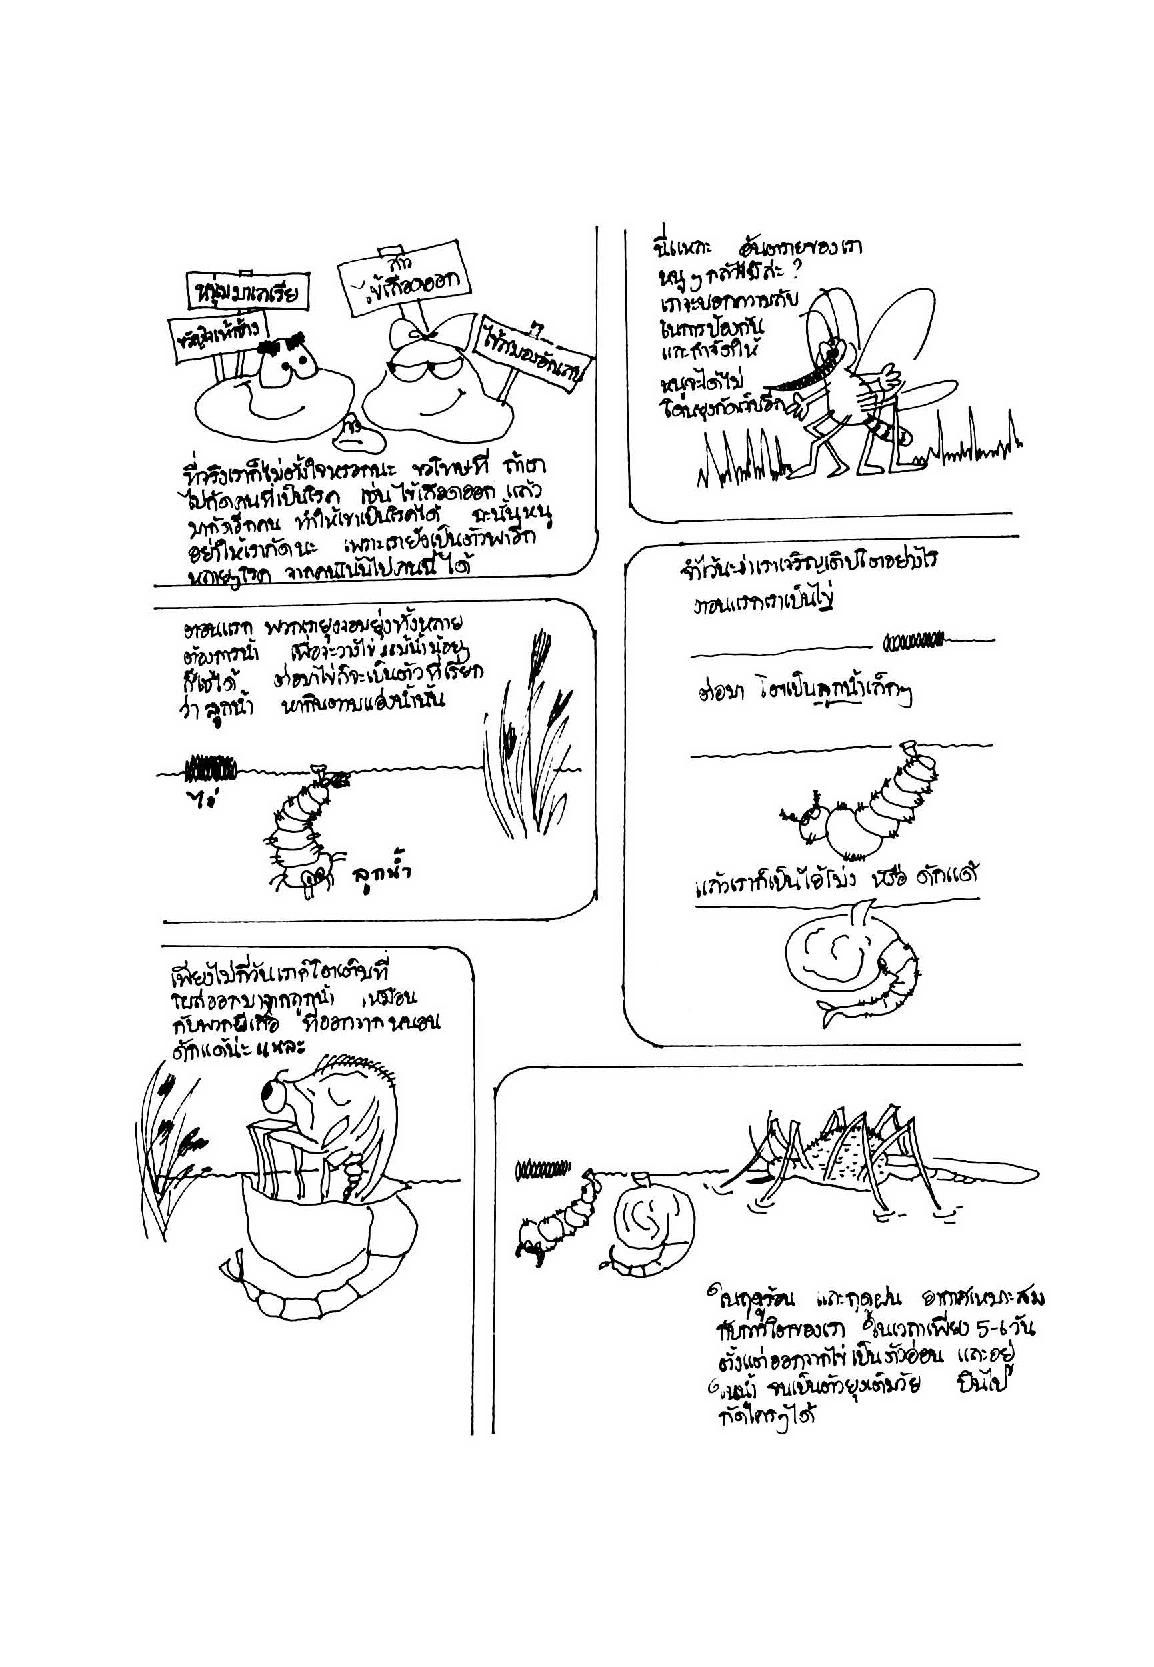 หนุ่มมาเลเรีย
ขวัญใจเท้าช้าง
สาว
ไข้เลือดออก
ไข้สมองอักเสบ
ที่จริงเราก็ไม่ตั้งใจหรอกนะ ขอโทษที ถ้าเรา
ไปกัดคนที่เป็นโรค เช่น ไข้เลือดออก แล้ว
มากัดอีกคน ทำให้เขาเป็นโรคได้ ฉะนั้นหนู
อย่าให้เรากัดนะ เพราะเรายังเป็นตัวพาอีก
หลายๆโรค จากคนโน้นไปคนนี้ได้
นี่แหละ อันตรายของเรา
หนูๆ กลัวมั๊ยล่ะ ?
เราจะบอกความลับ
ในการป้องกัน
และกำจัดให้
หนูจะได้ไม่
โดนยุงกัดเจ็บอีก
ตอนแรก พวกเรายุงจอมยุ่งทั้งหลาย
ต้องการน้ำ เพื่อจะวางไข่ แม้น้ำน้อยๆ
ก็ใช้ได้ ต่อมาไข่ก็จะเป็นตัวที่เรียก
ว่า ลูกน้ำ หากินตามแอ่งน้ำนั้น
ไข่
ลูกน้ำ
จำไว้นะว่าเราเจริญเติบโตอย่างไร
ตอนแรกเราเป็นไข่
ต่อมา โตเป็นลูกน้ำเล็กๆ
แล้วเราก็เป็นไอ้โม่ง หรือ ดักแด้
เพียงไม่กี่วันเราก็โตเต็มที่
โผล่ออกมาจากลูกน้ำ เหมือน
กับพวกผีเสื้อ ที่ออกจากหนอน
ดักแด้น่ะแหละ
ในฤดูร้อน และฤดูฝน อากาศเหมาะสม
กับการโตของเรา ในเวลาเพียง 5-6 วัน
ตั้งแต่ออกจากไข่ เป็นตัวอ่อน และอยู่
ในน้ำ จนเป็นตัวยุงเต็มวัย บินไป
กัดใครๆได้